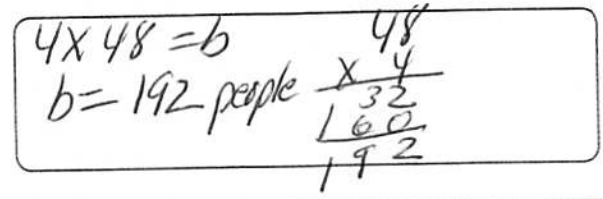 4x48=b
b=192 people
48
x 4
32
160
192